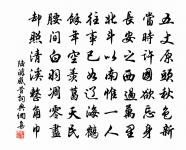 五丈原頭秋色新
當時許國欲忘身
長安之西過萬里
北斗以南惟一人
往事已如遼海鶴
餘年空羨葛天民
腰間白羽凋零盡
却照清溪整角巾
陸游感昔詞典網集